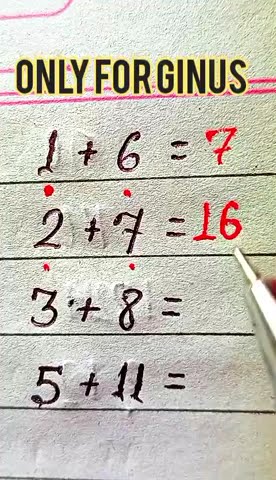 ONLY FOR GINUS
1 + 6 = 7
2 + 7 = 16
3 + 8 =
5 + 11 =